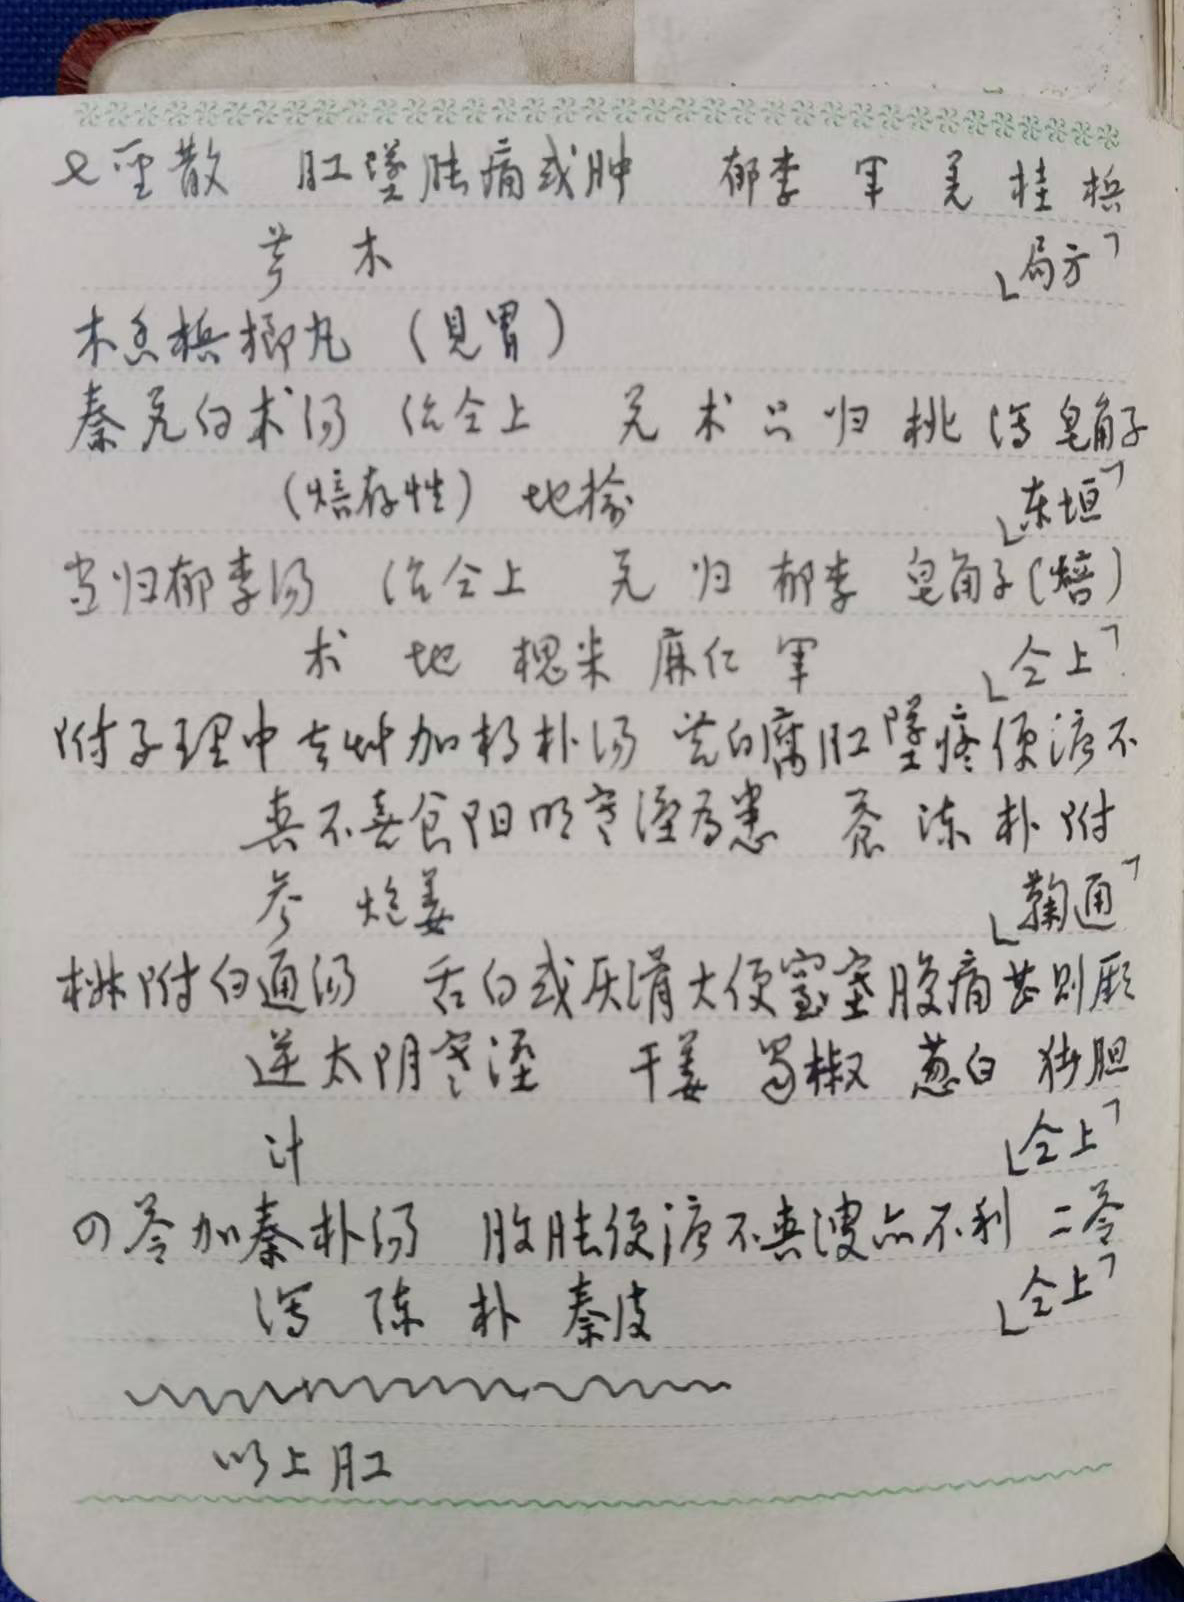 七圣散 肛坠胀痛或肿 郁李 军 羌 桂 槟
芎 木 「局方」
木香槟榔丸 (见胃)
秦艽白术汤 治仝上 艽 术 只 归 桃 泻 皂角子
(焙存性) 地榆 「东垣」
当归郁李汤 治仝上 艽 归 郁李 皂角子(焙)
术 地 槐米 麻仁 军 「仝上」
附子理中去艸加朴汤 苔白腐肛坠疼便溏不
爽不喜食阳明寒湿为患 苍 朴 附
参 炮姜 「鞠通」
椒附白通汤 舌白或灰滑大便窒塞腹痛甚则厥
逆太阴寒湿 干姜 蜀椒 葱白 猪胆
汁 「仝上」
四苓加秦朴汤 腹胀便溏不爽溲亦不利 二苓
泻 陈 朴 秦皮 「仝上」
以上肛